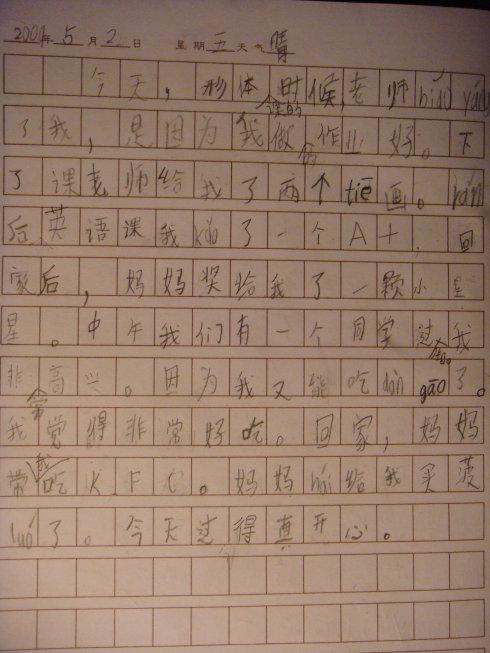 2009年5月2日 星期五天气晴
今天，形体课的时候，老师biǎo yáng
了我，是因为我做的作业好。下
了课老师给我了两个tiē画。rán
后英语课我kǎo了一个A+。回
家后，妈妈奖给我了一颗小星
星。中午我们有一个同学过生日。我
非常高兴。因为我又能吃dàn gāo了。
我觉得非常好吃。回家，妈妈
带我吃KFC。妈妈hái给我买菠
luó了。今天过得真开心。